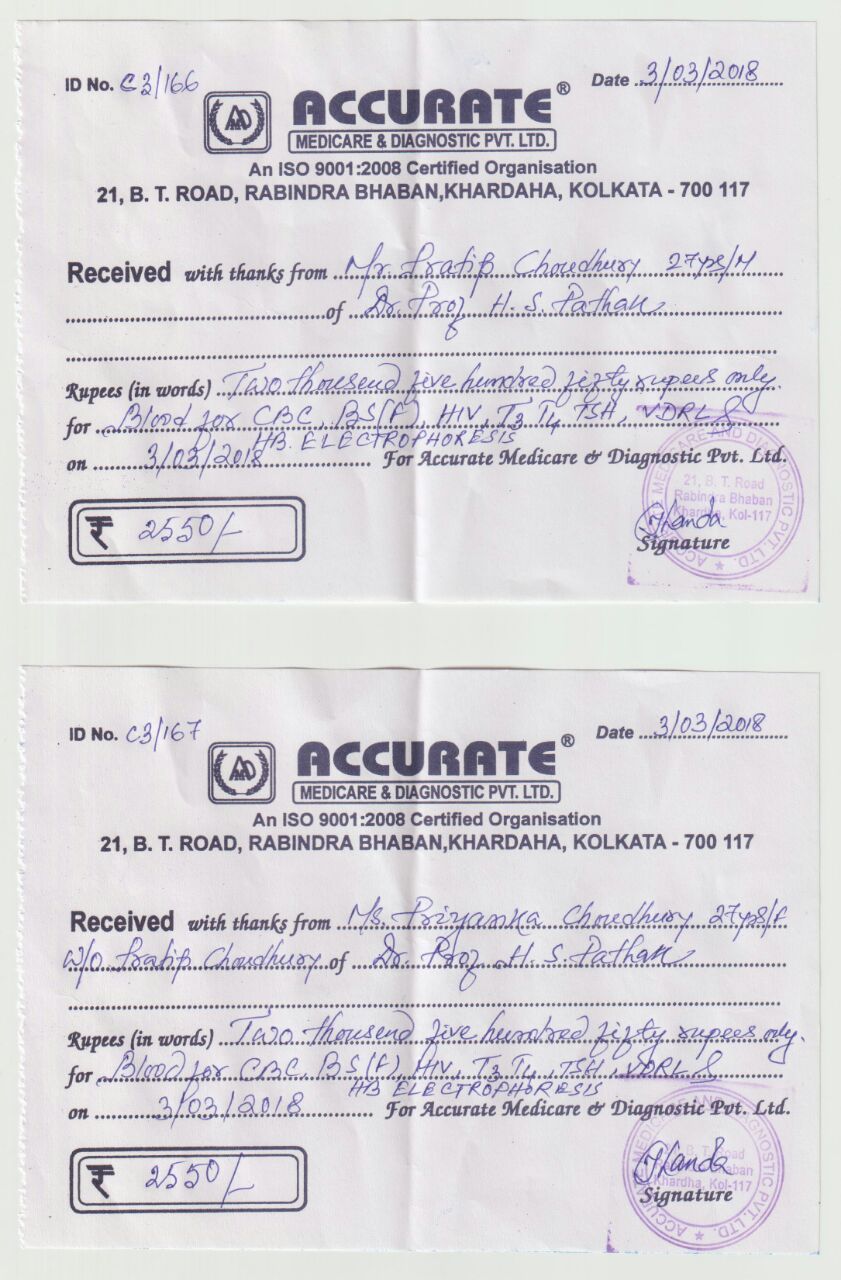 ID No. C3/166
Date 3/03/2018
ACCURATE®
MEDICARE & DIAGNOSTIC PVT. LTD.
An ISO 9001:2008 Certified Organisation
21, B. T. ROAD, RABINDRA BHABAN,KHARDAHA, KOLKATA - 700 117
Received with thanks from Mr. Pratip Choudhury 27yrs/M
of Dr. Prof H. S. Pathan
Rupees (in words) Two thousend five hundred fifty rupees only.
for Blood for CBC, BS(f), HIV, T3 T4 TSH, VDRL &
HB. ELECTROPHORESIS
on 3/03/2018 For Accurate Medicare & Diagnostic Pvt. Ltd.
ACCURATE MEDICARE AND DIAGNOSTIC PVT. LTD. ★
21, B. T. Road
Rabindra Bhaban
Khardha, Kol-117
₹ 2550/-
Signature
ID No. C3/167
Date 3/03/2018
ACCURATE®
MEDICARE & DIAGNOSTIC PVT. LTD.
An ISO 9001:2008 Certified Organisation
21, B. T. ROAD, RABINDRA BHABAN,KHARDAHA, KOLKATA - 700 117
Received with thanks from Ms. Priyanka Choudhury 27yrs/f
w/o Pratip Choudhury of Dr. Prof H. S. Pathan
Rupees (in words) Two thousend five hundred fifty rupees only.
for Blood for CBC, BS(f), HIV, T3 T4, TSH, VDRL &
HB ELECTROPHORESIS
on 3/03/2018 For Accurate Medicare & Diagnostic Pvt. Ltd.
ACCURATE MEDICARE AND DIAGNOSTIC PVT. LTD. ★
B. T. Road
Bhaban
Khardha, Kol-117
₹ 2550/-
Signature